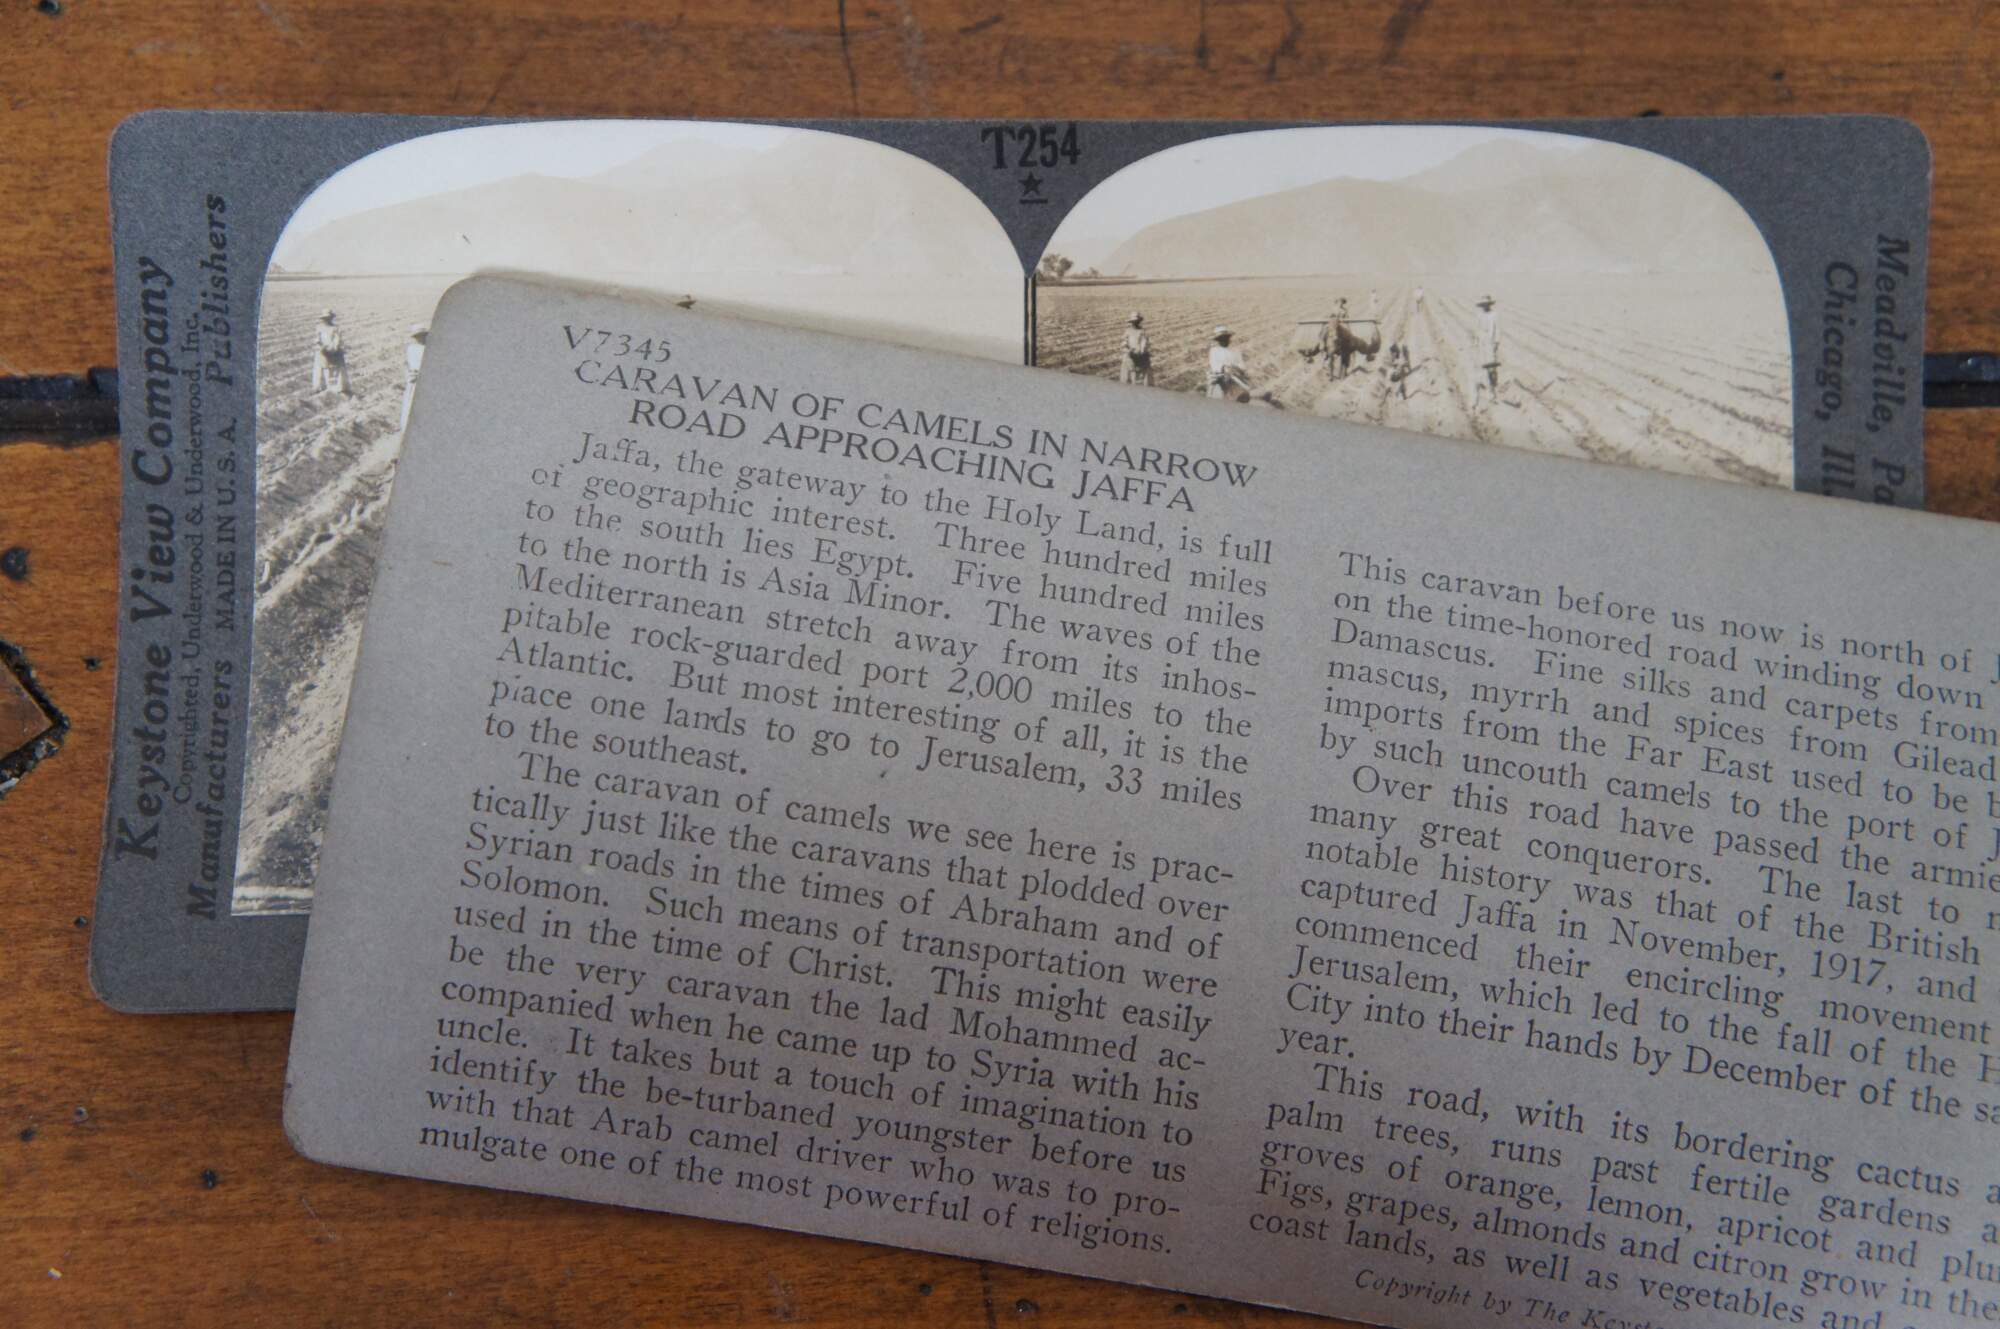 T254
Keystone View Company
Copyrighted, Underwood & Underwood, Inc.
Manufacturers MADE IN U.S.A. Publishers
Meadville, Pa
Chicago, Ill
V7345
CARAVAN OF CAMELS IN NARROW
ROAD APPROACHING JAFFA
Jaffa, the gateway to the Holy Land, is full
of geographic interest. Three hundred miles
to the south lies Egypt. Five hundred miles
to the north is Asia Minor. The waves of the
Mediterranean stretch away from its inhos-
pitable rock-guarded port 2,000 miles to the
Atlantic. But most interesting of all, it is the
place one lands to go to Jerusalem, 33 miles
to the southeast.
The caravan of camels we see here is prac-
tically just like the caravans that plodded over
Syrian roads in the times of Abraham and of
Solomon. Such means of transportation were
used in the time of Christ. This might easily
be the very caravan the lad Mohammed ac-
companied when he came up to Syria with his
uncle. It takes but a touch of imagination to
identify the be-turbaned youngster before us
with that Arab camel driver who was to pro-
mulgate one of the most powerful of religions.
This caravan before us now is north of
on the time-honored road winding down
Damascus. Fine silks and carpets from
mascus, myrrh and spices from Gilead
imports from the Far East used to be
by such uncouth camels to the port of
Over this road have passed the
many great conquerors. The last to
notable history was that of the British
captured Jaffa in November, 1917, and
commenced their encircling movement
Jerusalem, which led to the fall of the
City into their hands by December of the
year.
This road, with its bordering cactus
palm trees, runs past fertile gardens
groves of orange, lemon, apricot and
Figs, grapes, almonds and citron grow in the
coast lands, as well as vegetables and
Copyright by The